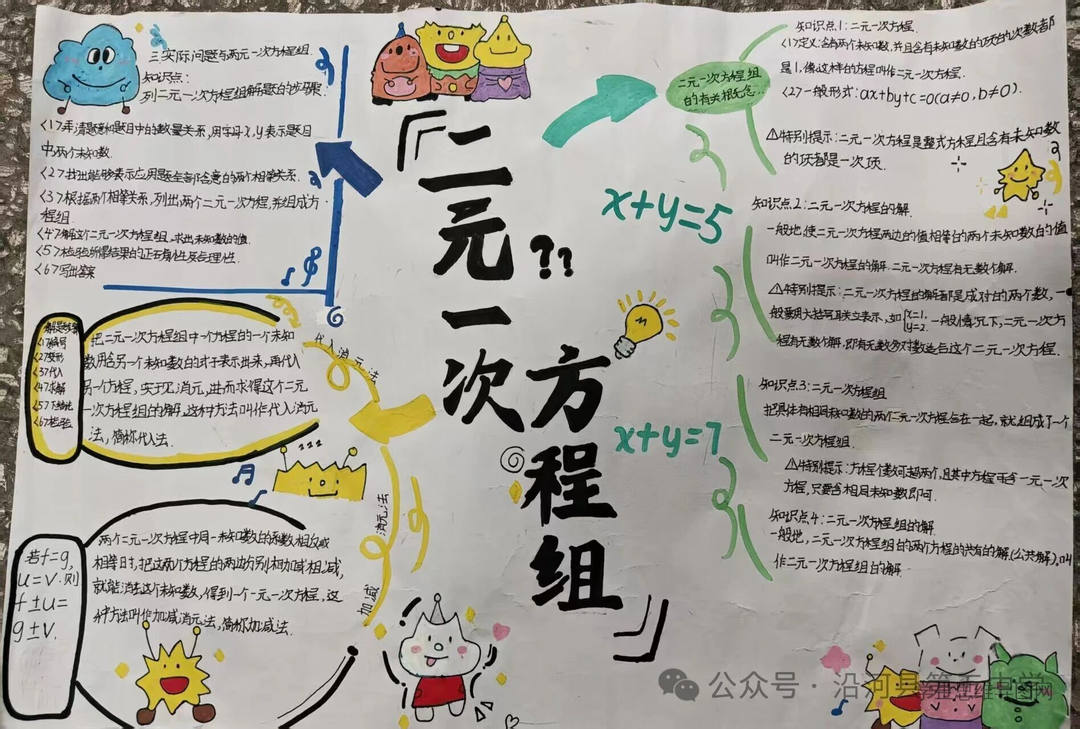 『二元一次方程组』
??
x+y=5
x+y=7
三、实际问题与两元一次方程组.
知识点:
列二元一次方程组解题的步骤:
<1>弄清题意和题目中的数量关系,用字母x,y表示题目
中两个未知数.
<2>找出能够表示应用题全部含意的两个相等关系.
<3>根据两个相等关系,列出两个二元一次方程,并组成方
程组.
<4>解这个二元一次方程组,求出未知数的值.
<5>检验所得结果的正确性及合理性.
<6>写出答案
代入消元法
解题步骤
<1>编号
<2>变形
<3>代入
<4>求解
<5>下结论
<6>检验
把二元一次方程组中一个方程的一个未知
数用含另一个未知数的式子表示出来,再代入
另一个方程,实现消元,进而求得这个二元
一次方程组的解,这种方法叫作代入消元
法,简称代入法.
加减消元法
若f=g,
u=v.则
f±u=
g±v.
两个二元一次方程中同一未知数的系数相反或
相等时,把这两个方程的两边分别相加或相减,
就能消去这个未知数,得到一个一元一次方程,这
种方法叫作加减消元法,简称加减法.
二元一次方程组
的有关概念
知识点1:二元一次方程.
<1>定义:含有两个未知数,并且含有未知数的项的次数都
是1,像这样的方程叫作二元一次方程.
<2>一般形式:ax+by+c=0(a≠0,b≠0).
⚠特别提示:二元一次方程是整式方程且含有未知数
的项都是一次项.
知识点2:二元一次方程的解.
一般地,使二元一次方程两边的值相等的两个未知数的值
叫作二元一次方程的解.二元一次方程有无数个解.
⚠特别提示:二元一次方程的解都是成对的两个数,一
般要用大括号联立表示,如{x=1, y=2. 一般情况下,二元一次方
程有无数个解,即有无数多对数适合这个二元一次方程.
知识点3:二元一次方程组
把具有相同未知数的两个二元一次方程合在一起,就组成了一个
二元一次方程组.
⚠特别提示:方程个数可超两个,且其中方程可含一元一次
方程,只要含相同未知数即可.
知识点4:二元一次方程组的解
一般地,二元一次方程组的两个方程的共有的解(公共解),叫
作二元一次方程组的解.
公众号·沿河县第五中学